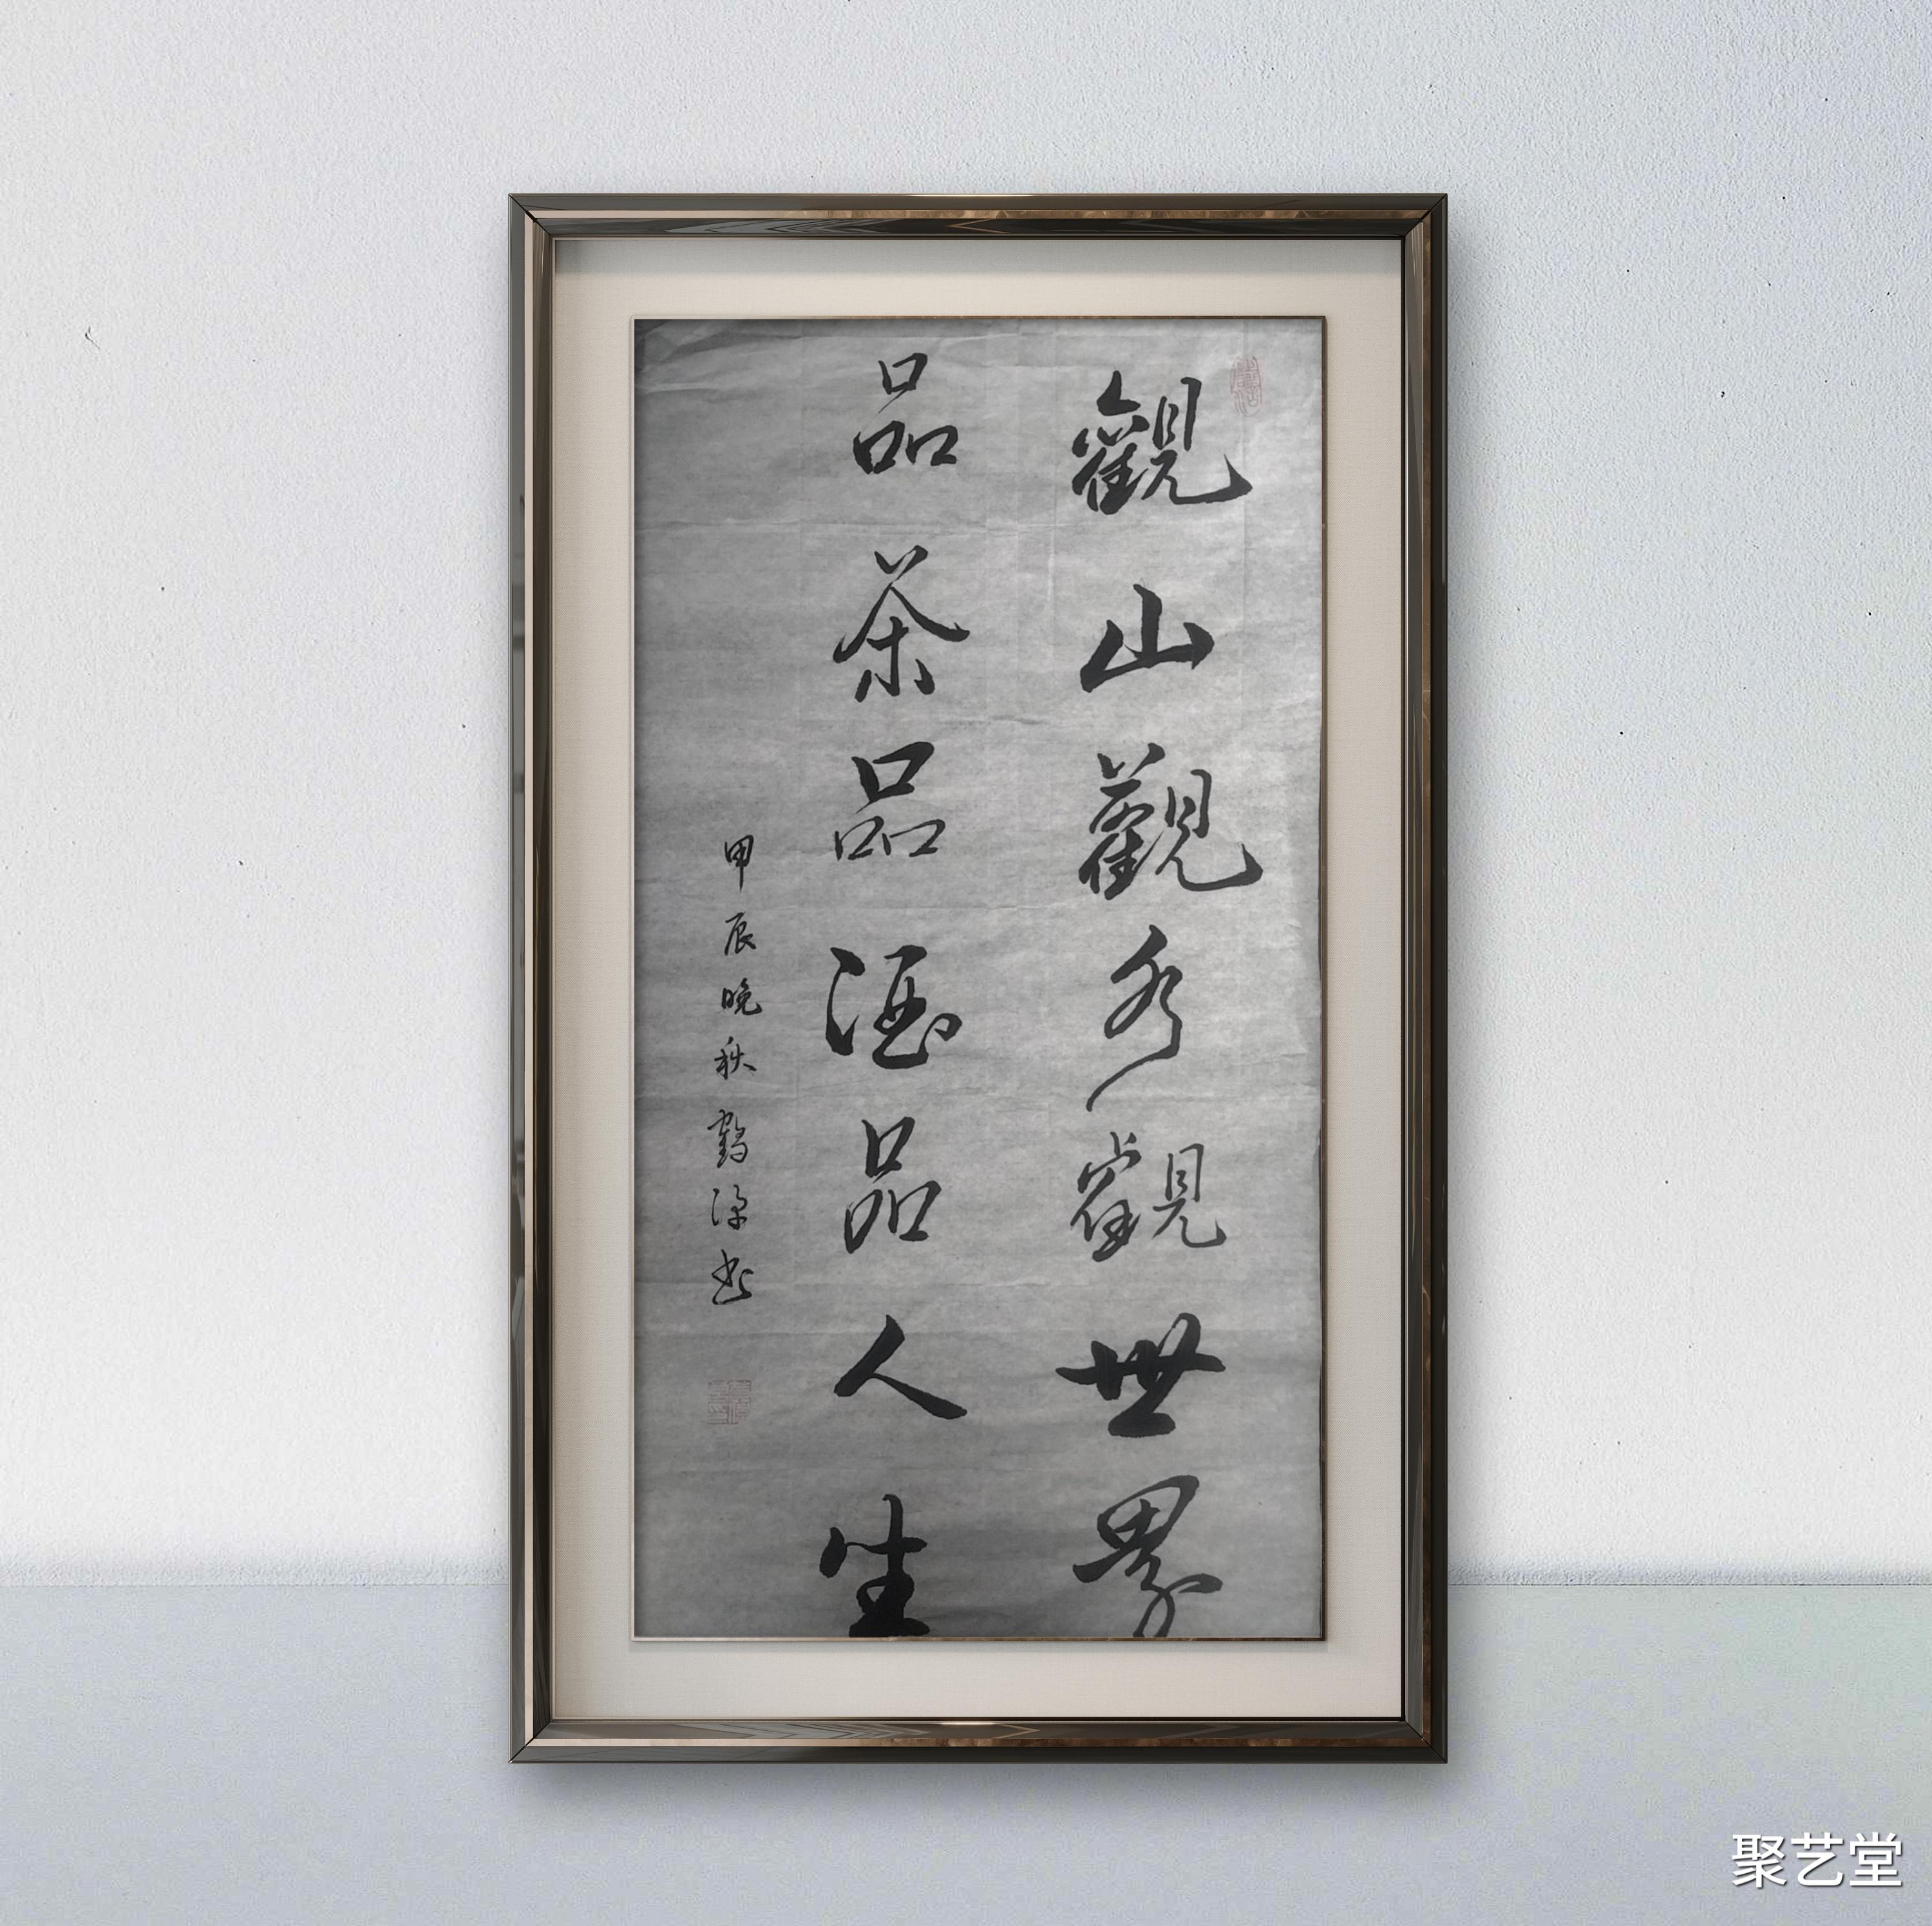 觀山觀水觀世界
品茶品酒品人生
甲辰晚秋鶴澤书
聚艺堂